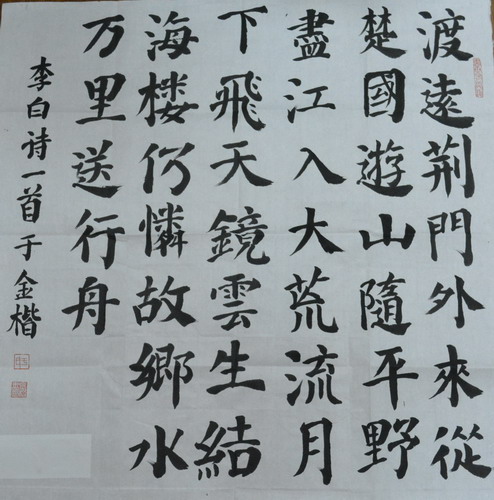 渡遠荆門外來從
楚國遊山隨平野
盡江入大荒流月
下飛天鏡雲生結
海楼仍憐故鄉水
万里送行舟
李白诗一首于金楷